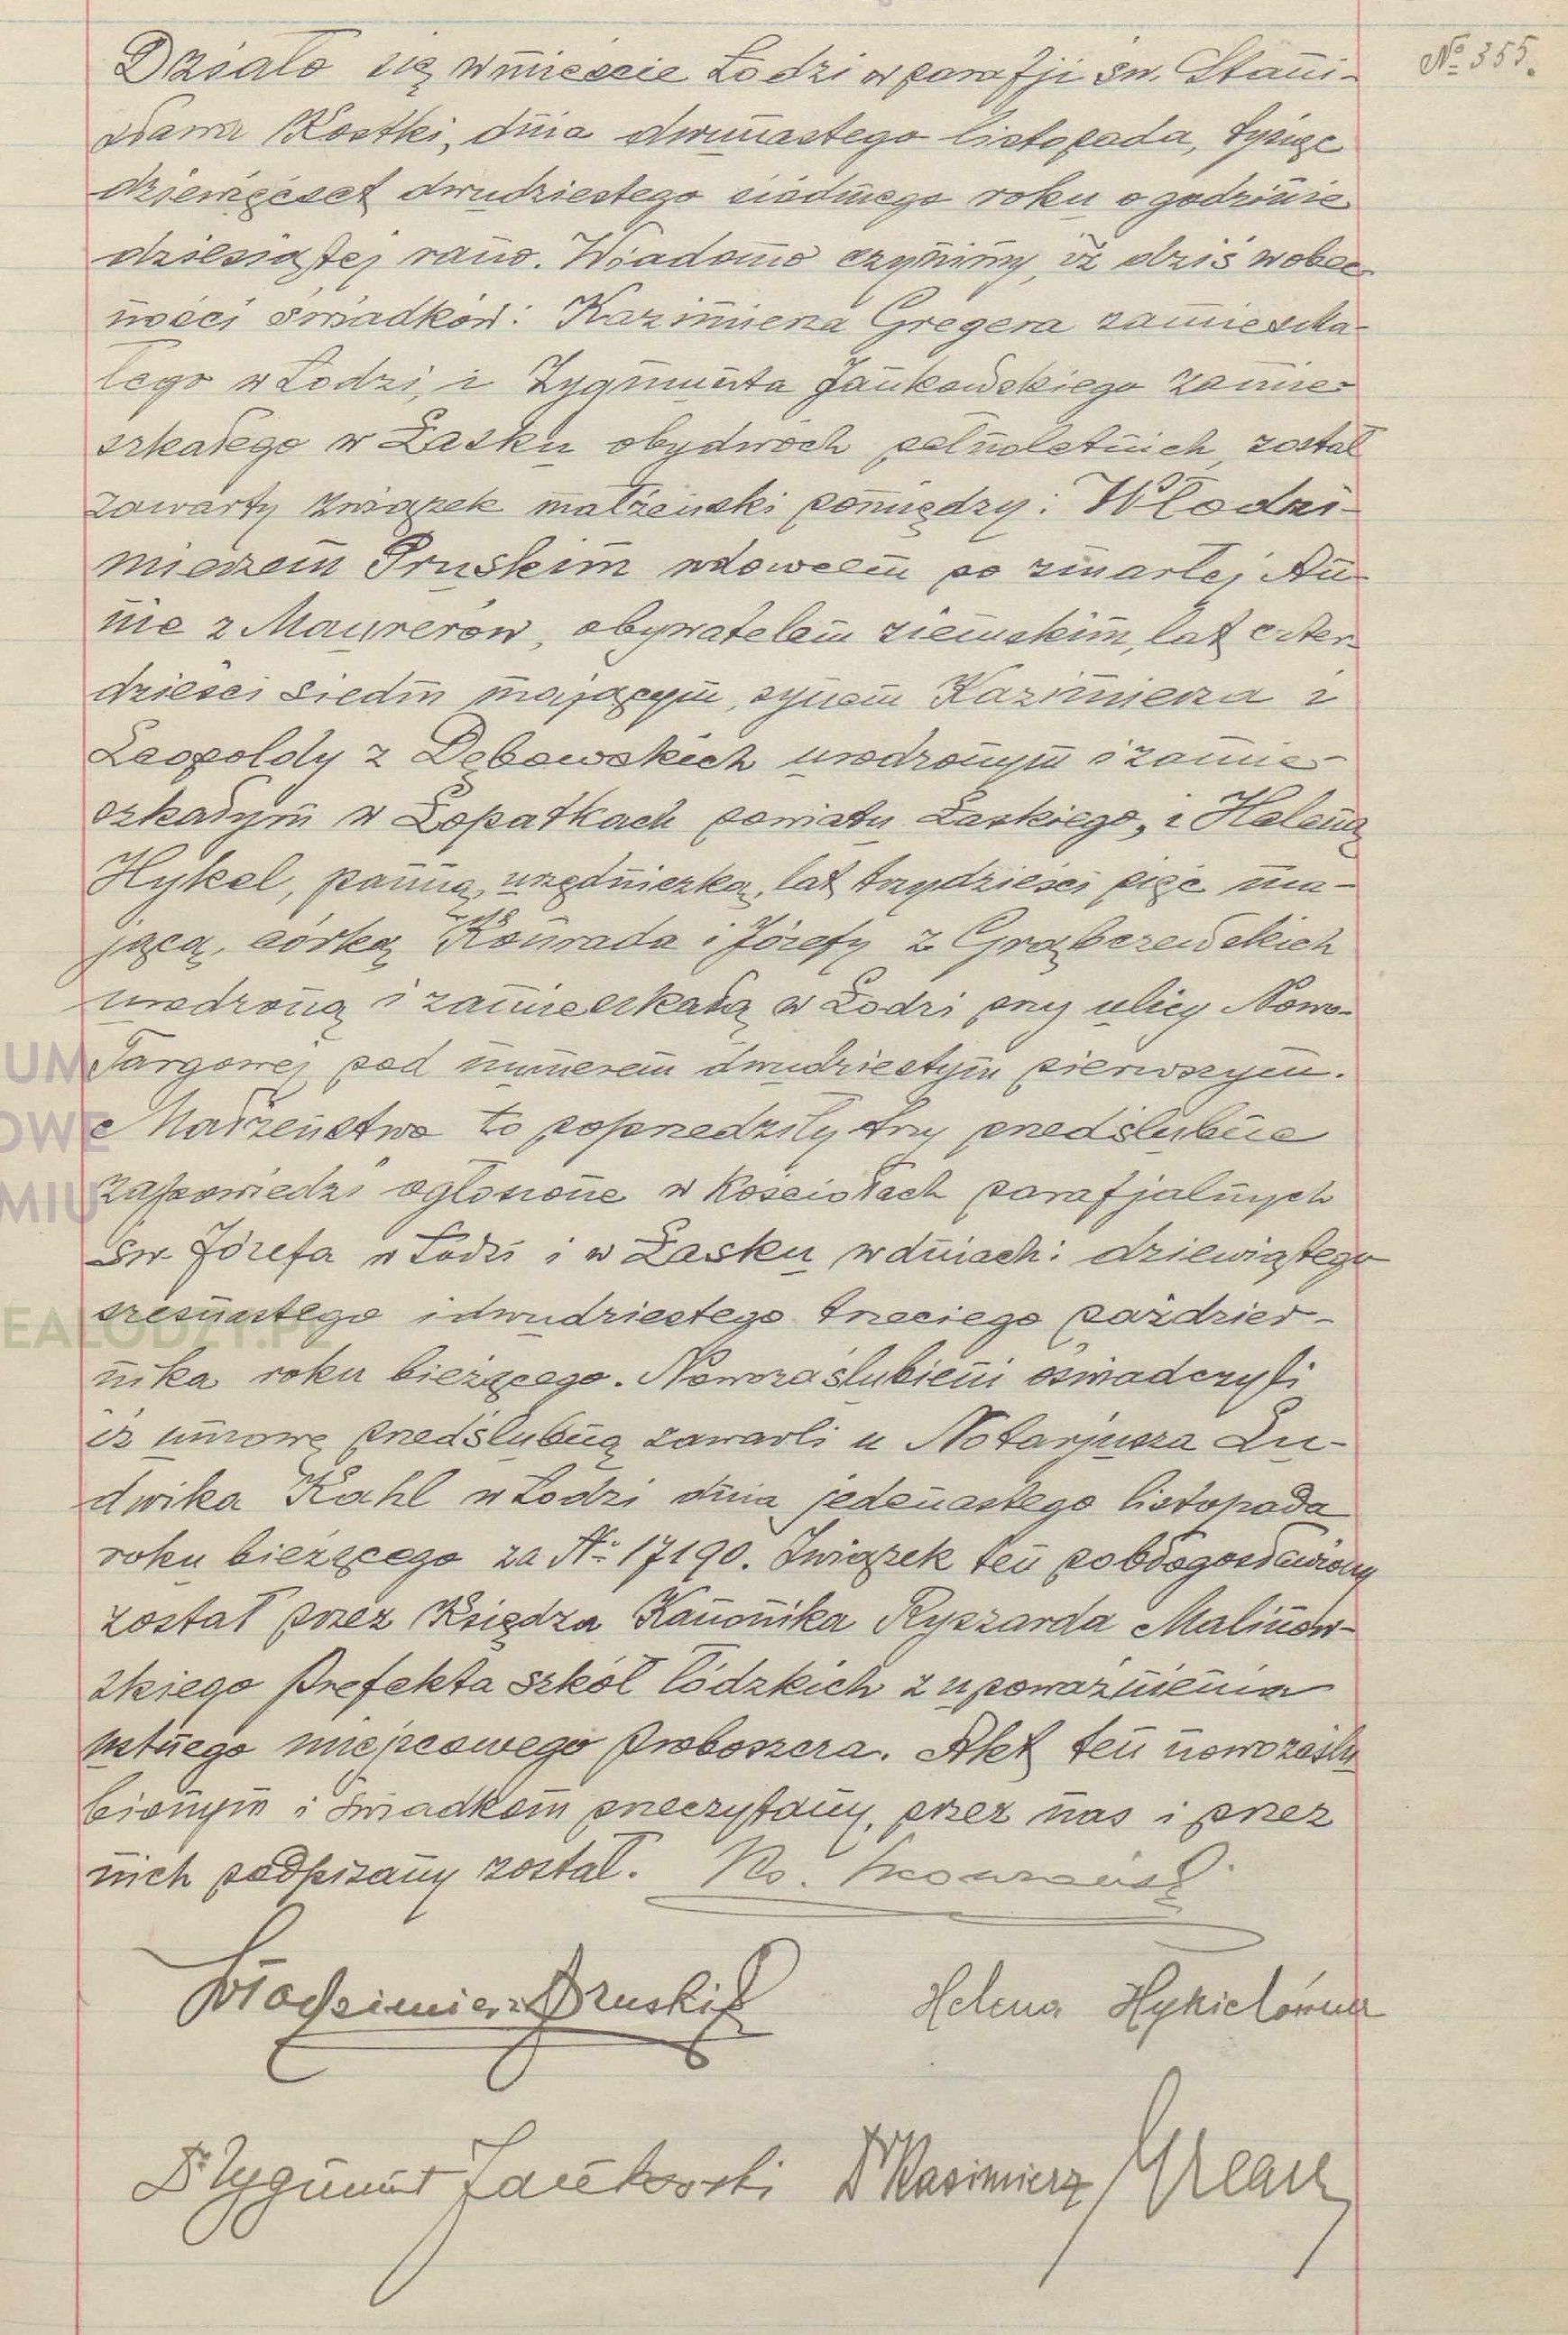 № 355.
Działo się w mieście Łodzi w parafji św. Stani-
sława Kostki, dnia dwunastego listopada, tysiąc
dziewięćset dwudziestego siódmego roku o godzinie
dziesiątej rano. Wiadomo czynimy, iż dziś w obec-
ności świadków: Kazimierza Gregera zamieszka-
łego w Łodzi, i Zygmunta Jankowskiego zamie-
szkałego w Łasku obydwóch pełnoletnich, został
zawarty związek małżeński pomiędzy: Włodzi-
mierzem Pruskim wdowcem po zmarłej An-
nie z Maurerów, obywatelem ziemskim, lat czter-
dzieści siedm mającym, synem Kazimierza i
Leopoldy z Dobowskich urodzonym i zamie-
szkałym w Łopatkach powiatu Łaskiego, i Heleną
Hykel, panną, urzędniczką, lat trzydzieści pięć ma-
jącą, córką Konrada i Józefy z Grabczewskich
urodzoną i zamieszkałą w Łodzi przy ulicy Nowo-
Targowej pod numerem dwudziestym pierwszym.
Małżeństwo to poprzedziły trzy przedślubne
zapowiedzi ogłoszone w Kościołach parafjalnych
Św. Józefa w Łodzi i w Łasku w dniach: dziewiątego
szesnastego i dwudziestego trzeciego paździer-
nika roku bieżącego. Nowozaślubieni oświadczyli
iż umowę przedślubną zawarli u Notarjusza Lu-
dwika Kahl w Łodzi dnia jedenastego listopada
roku bieżącego za № 17190. Związek ten pobłogosławiony
został przez Księdza Kanonika Ryszarda Malinow-
skiego Prefekta szkół łódzkich z upoważnienia
ustnego miejscowego Proboszcza. Akt ten nowozaślu
bionym i świadkom przeczytany, przez nas i przez
nich podpisany został. Ks.
Włodzimierz Pruski
Helena Hykielówna
Dr Zygmunt Jankowski
Dr Kazimierz